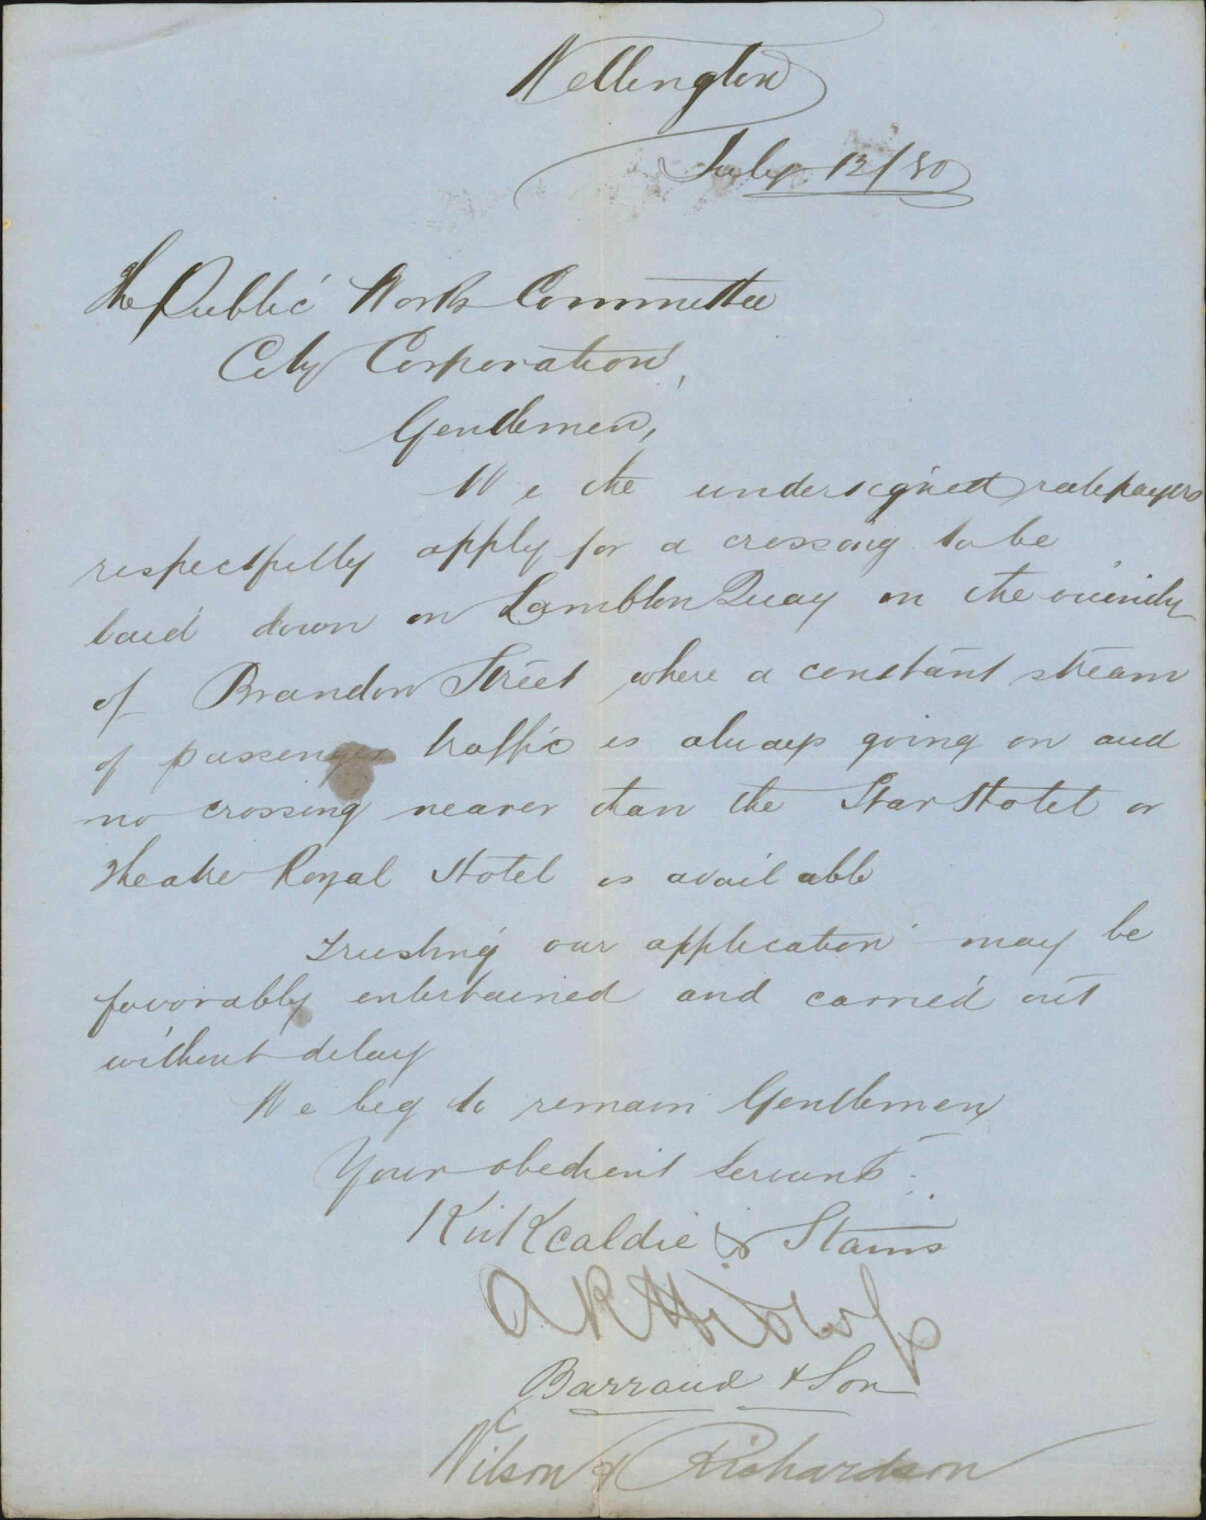 Wellington
July 13/80
The Public Works Committee
City Corporation,
Gentlemen,
We the undersigned ratepayers
respectfully apply for a crossing to be
laid down on Lambton Quay in the vicinity
of Brandon Street where a constant stream
of passenger traffic is always going on and
no crossing nearer than the Star Hotel or
Theatre Royal Hotel is available
Trusting our application may be
favorably entertained and carried out
without delay
We beg to remain Gentlemen
Your obedient Servants
Kirkcaldie & Stains
Barraud & Son
Wilson & Richardson